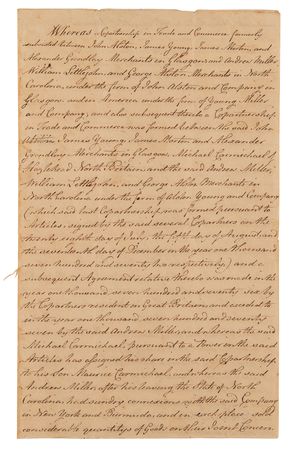 Whereas a Copartnership in Trade and Commerce formerly
subsisted between John Alston, James Young, James Morton, and
Alexander Grindlay Merchants in Glasgow and Andrew Miller
William Littlejohn, and George Alston Merchants in North
Carolina, under the firm of John Alston and Company in
Glasgow and in America under the firm of Young Miller
and Company, and also subsequent thereto a Copartnership
in Trade and Commerce was formed between the said John
Alston, James Young, James Morton and Alexander
Grindlay Merchants in Glasgow Michael Carmichael of
North Britain, and the said Andrew Miller,
William Littlejohn, and George Alston Merchants in
North Carolina under the firm of Alston Young and Company
(which said last Copartnership was formed pursuant to
Articles signed by the said several Copartners on the
twenty eighth day of July, the fifth day of August and
the seventeenth day of December in the year one thousand
seven hundred and seventy two respectively) and a
subsequent Agreement relative thereto was made in the
year one thousand seven hundred and seventy six by
the Copartners resident in Great Britain and acceded to
in the year one thousand seven hundred and seventy
seven by the said Andrew Miller, and whereas the said
Michael Carmichael pursuant to a Power in the said
Articles has assigned his share in the said Copartnership
to his Son Maurice Carmichael and whereas the said
Andrew Miller after his leaving the State of North
Carolina, had sundry connexions with the said Company
in New York and Bermuda, and in each place sold
considerable quantitys of Goods on their Joint Concern